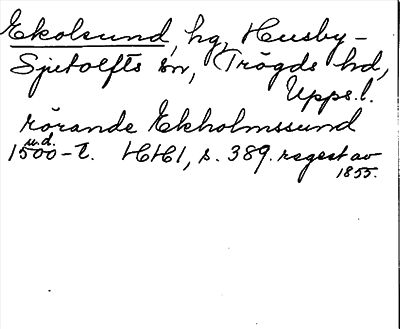 Ekolsund, hg, Husby-
Sjutolfts sn, Trögds hd,
Upps.l.
rörande Ekholmssund
u.d.
1500-t. HH1, s. 389. regest av
1855.